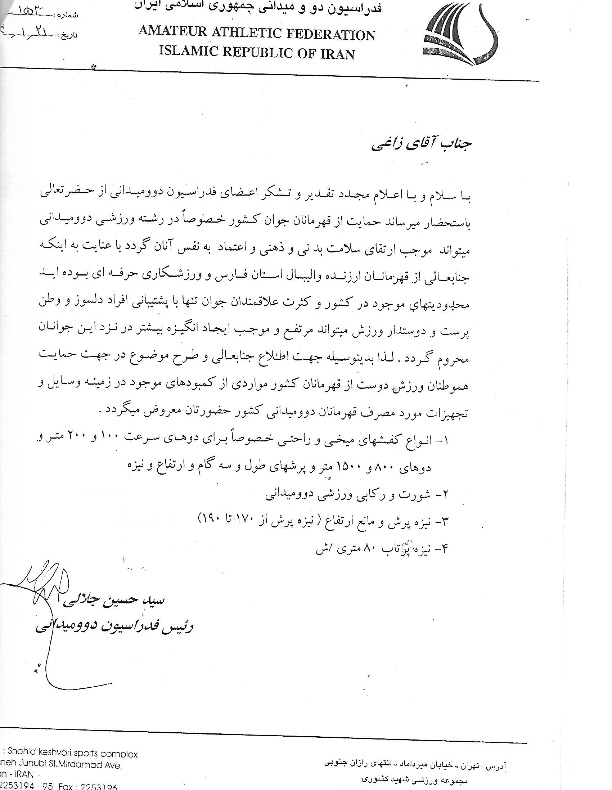 فدراسیون دو و میدانی جمهوری اسلامی ایران
AMATEUR ATHLETIC FEDERATION
ISLAMIC REPUBLIC OF IRAN
شماره:
تاریخ:
جناب آقای زاغی
با سلام و با اعلام مجدد تقدیر و تشکر اعضای فدراسیون دوومیدانی از حضرتعالی
باستحضار میرساند حمایت از قهرمانان جوان کشور خصوصاً در رشته ورزشی دوومیدانی
میتواند موجب ارتقای سلامت بدنی و ذهنی و اعتماد به نفس آنان گردد با عنایت به اینکه
جنابعالی از قهرمانان ارزنده والیبال استان فارس و ورزشکاری حرفه ای بوده اید.
محدودیتهای موجود در کشور و کثرت علاقمندان جوان تنها با پشتیبانی افراد دلسوز و وطن
پرست و دوستدار ورزش میتواند مرتفع و موجب ایجاد انگیزه بیشتر در نزد این جوانان
محروم گردد . لذا بدینوسیله جهت اطلاع جنابعالی و طرح موضوع در جهت حمایت
هموطنان ورزش دوست از قهرمانان کشور مواردی از کمبودهای موجود در زمینه وسایل و
تجهیزات مورد مصرف قهرمانان دوومیدانی کشور حضورتان معروض میگردد .
۱- انواع کفشهای میخی و راحتی خصوصاً برای دوهای سرعت ۱۰۰ و ۲۰۰ متر و
دوهای ۸۰۰ و ۱۵۰۰ متر و پرشهای طول و سه گام و ارتفاع و نیزه
۲- شورت و رکابی ورزشی دوومیدانی
۳- نیزه پرش و مانع ارتفاع ( نیزه پرش از ۱۷۰ تا ۱۹۰)
۴- نیزه پرتاب ۸۰ متری /ش
سید حسین جلالی
رئیس فدراسیون دوومیدانی
: Shahid keshvari sports complex
neh Junubi St.Mirdamad Ave.
n - IRAN
2253194 - 95 Fax : 2253196
آدرس : تهران ـ خیابان میرداماد ـ انتهای رازان جنوبی
مجموعه ورزشی شهید کشوری